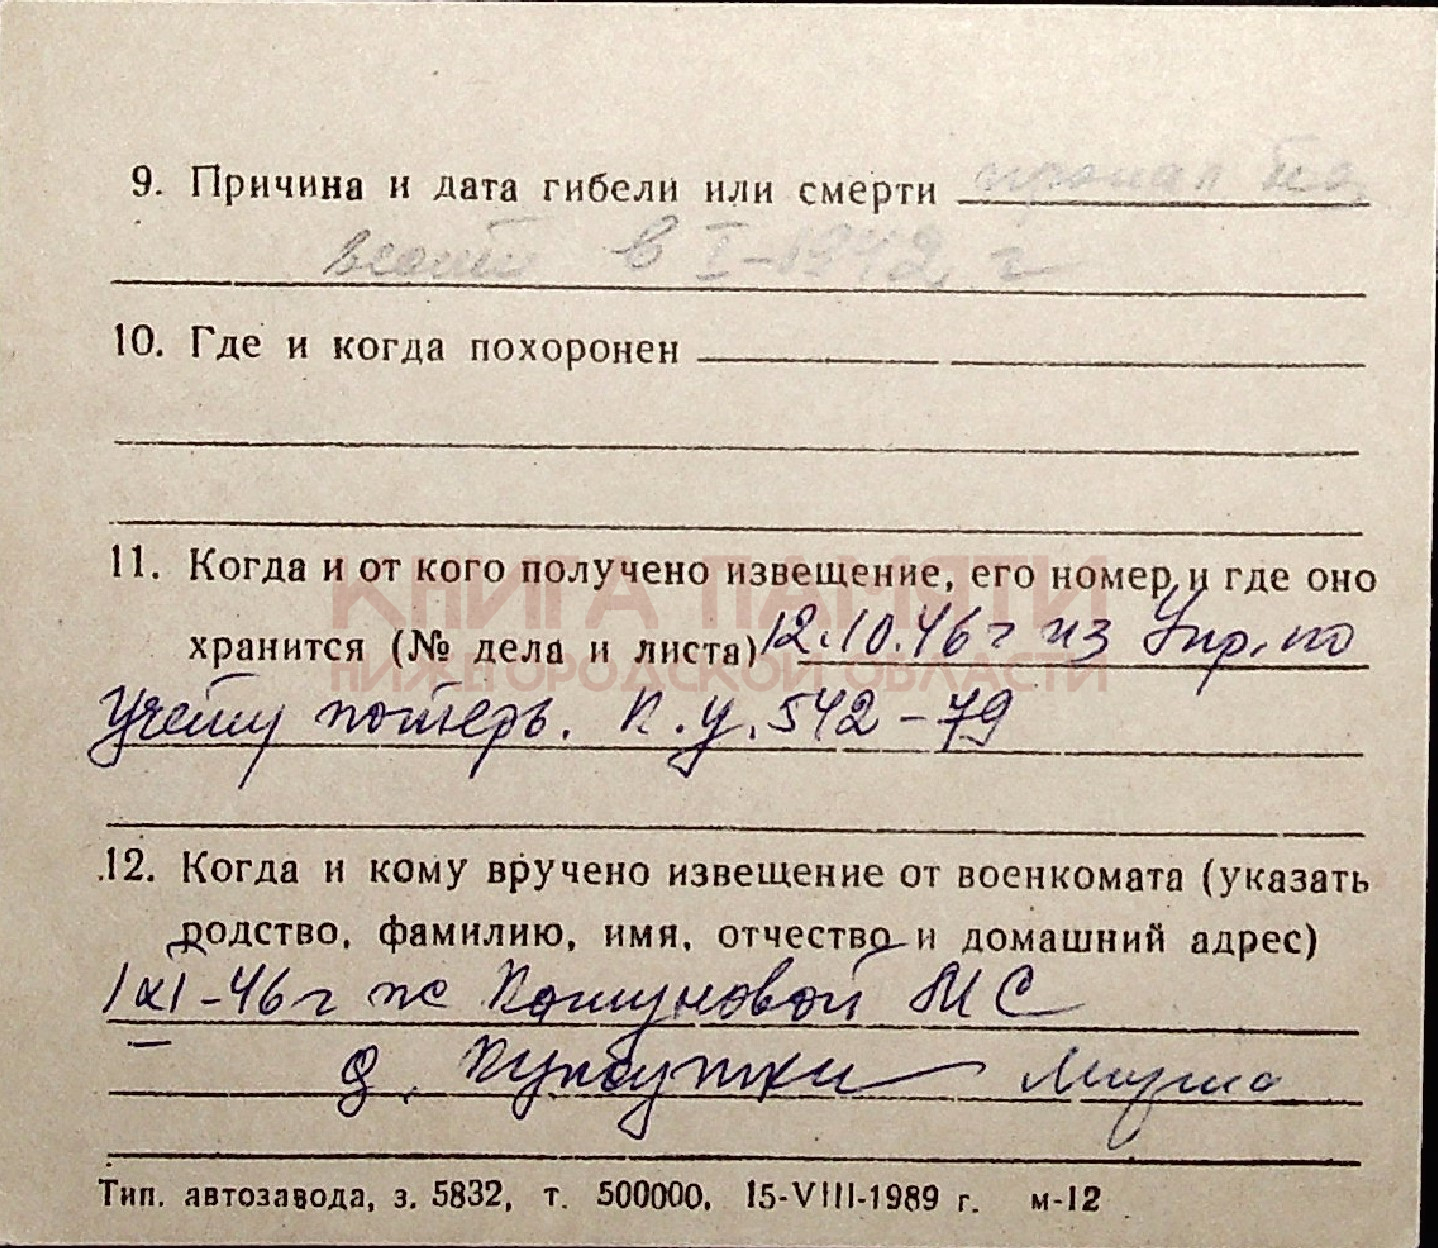 9. Причина и дата гибели или смерти пропал без
вести в I-1942 г
10. Где и когда похоронен
11. Когда и от кого получено извещение, его номер и где оно
КНИГА ПАМЯТИ
хранится (№ дела и листа) 12.10.46 г из Упр. по
НИЖЕГОРОДСКОЙ ОБЛАСТИ
учету потерь. К.у. 542-79
12. Когда и кому вручено извещение от военкомата (указать
родство, фамилию, имя, отчество и домашний адрес)
1 XI-46 г же М С
д.
Тип. автозавода, з. 5832, т. 500000. 15-VIII-1989 г. м-12